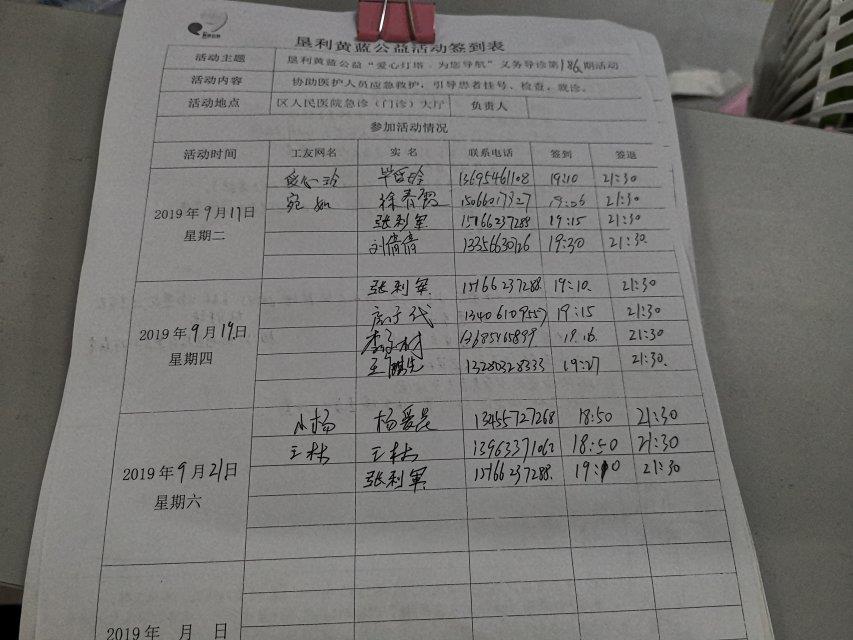 垦利黄蓝公益活动签到表
活动主题 垦利黄蓝公益“爱心灯塔 为您导航”义务导诊第186期活动
活动内容 协助医护人员应急救护，引导患者挂号、检查、就诊。
活动地点 区人民医院急诊（门诊）大厅 负责人
参加活动情况
活动时间 工友网名 实名 联系电话 签到 签退
2019年9月17日
星期二
13695461108 19:10 21:30
宛如 21:30
张利军 15766237288 19:15 21:30
刘倩倩 19:30 21:30
2019年9月19日
星期四
张利军 15766237288 19:10 21:30
19:15 21:30
21:30
13280328333 19:27 21:30
2019年9月21日
星期六
小杨 杨爱昆 13455727268 18:50 21:30
王林 王林 13963371062 18:50 21:30
张利军 15766237288 19:10 21:30
2019年 月 日